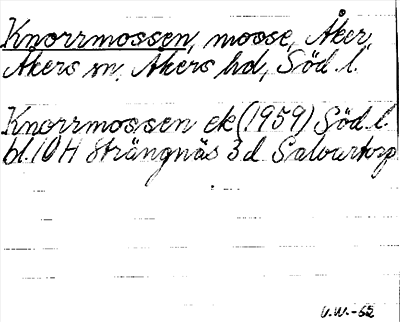 Knorrmossen, mosse, Åker,
Åkers sn, Åkers hd, Söd. l.
Knorrmossen ek (1959) Söd. l.
bl. 10 H Strängnäs 3d Salvartorp
U.W.-62